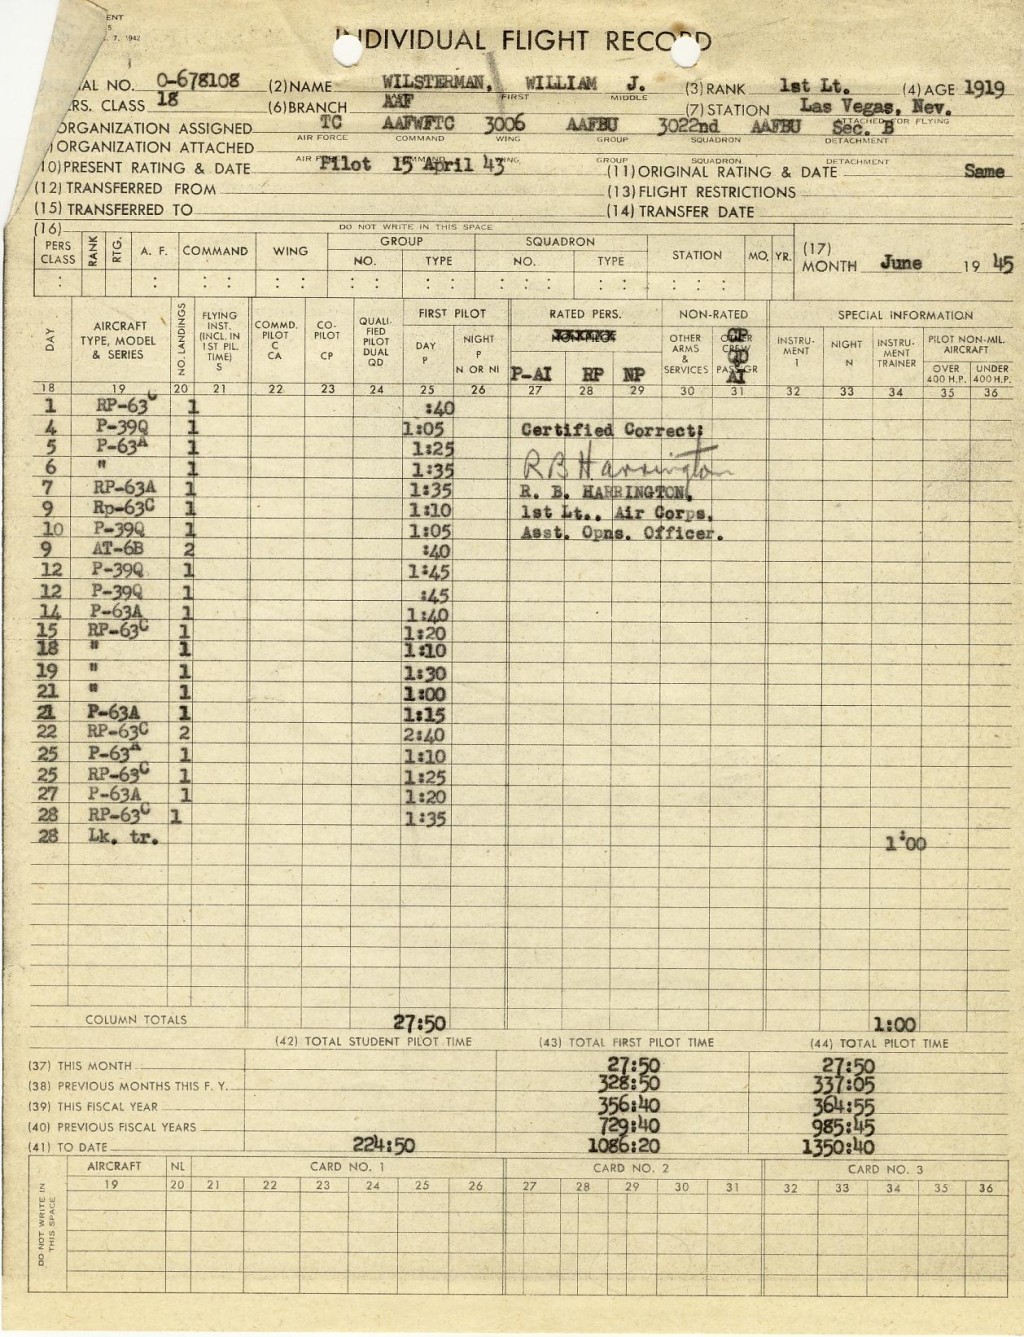 ENT
5
. 7, 1942
INDIVIDUAL FLIGHT RECORD
AL NO. 0-678108 (2) NAME WILSTERMAN, WILLIAM J. (3) RANK 1st Lt. (4) AGE 1919
FIRST MIDDLE
RS. CLASS 18 (6) BRANCH AAF (7) STATION Las Vegas, Nev.
ORGANIZATION ASSIGNED TC AAFWFTC 3006 AAFBU 3022nd AAFBU Sec. B
ATTACHED FOR FLYING
AIR FORCE COMMAND WING GROUP SQUADRON DETACHMENT
) ORGANIZATION ATTACHED
AIR F COMMAND WING GROUP SQUADRON DETACHMENT
10) PRESENT RATING & DATE Pilot 15 April 43 (11) ORIGINAL RATING & DATE Same
(12) TRANSFERRED FROM (13) FLIGHT RESTRICTIONS
(15) TRANSFERRED TO (14) TRANSFER DATE
(16) DO NOT WRITE IN THIS SPACE
PERS CLASS RANK RTG. A. F. COMMAND WING GROUP NO. TYPE SQUADRON NO. TYPE STATION MO. YR. (17) MONTH June 19 45
DAY AIRCRAFT TYPE, MODEL & SERIES NO. LANDINGS FLYING INST. (INCL. IN 1ST PIL. TIME) S COMMD. PILOT C CA CO-PILOT CP QUALI-FIED PILOT DUAL QD FIRST PILOT DAY P NIGHT P N OR NI RATED PERS. P-AI RP NP NON-RATED OTHER ARMS & SERVICES SPECIAL INFORMATION INSTRU-MENT I NIGHT N INSTRU-MENT TRAINER PILOT NON-MIL. AIRCRAFT OVER 400 H.P. UNDER 400 H.P.
18 19 20 21 22 23 24 25 26 27 28 29 30 31 32 33 34 35 36
1 RP-63C 1 :40
4 P-39Q 1 1:05 Certified Correct:
5 P-63A 1 1:25
6 " 1 1:35 R B Harrington
7 RP-63A 1 1:35 R. B. HARRINGTON,
9 Rp-63C 1 1:10 1st Lt., Air Corps,
10 P-39Q 1 1:05 Asst. Opns. Officer.
9 AT-6B 2 :40
12 P-39Q 1 1:45
12 P-39Q 1 :45
14 P-63A 1 1:40
15 RP-63C 1 1:20
18 " 1 1:10
19 " 1 1:30
21 " 1 1:00
21 P-63A 1 1:15
22 RP-63C 2 2:40
25 P-63A 1 1:10
25 RP-63C 1 1:25
27 P-63A 1 1:20
28 RP-63C 1 1:35
28 Lk. tr. 1:00
COLUMN TOTALS 27:50 1:00
(42) TOTAL STUDENT PILOT TIME (43) TOTAL FIRST PILOT TIME (44) TOTAL PILOT TIME
(37) THIS MONTH 27:50 27:50
(38) PREVIOUS MONTHS THIS F. Y. 328:50 337:05
(39) THIS FISCAL YEAR 356:40 364:55
(40) PREVIOUS FISCAL YEARS 729:40 985:45
(41) TO DATE 224:50 1086:20 1350:40
DO NOT WRITE IN THIS SPACE
AIRCRAFT NL CARD NO. 1 CARD NO. 2 CARD NO. 3
19 20 21 22 23 24 25 26 27 28 29 30 31 32 33 34 35 36